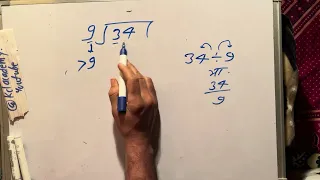 9 34
1
>9
34÷9
भा.
34
9
@KclAcademy
Youtube